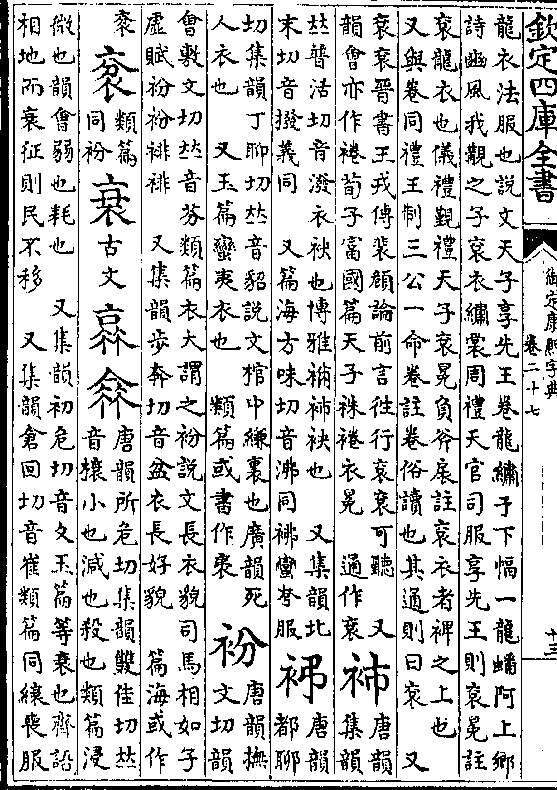 欽定四庫全書
御定康熙字典
卷二十七
十三
龍衣法服也說文天子享先王卷龍繡于下幅一龍蟠阿上鄉
詩豳風我覯之子袞衣繡裳周禮天官司服享先王則袞冕註
袞龍衣也儀禮覲禮天子袞冕負斧扆註袞衣者裨之上也
又與卷同禮王制三公一命卷註卷俗讀也其通則曰袞 又
袞袞晉書王戎傳裴頠論前言往行袞袞可聽 又
韻會亦作裷荀子富國篇天子袾裷衣冕 通作袞
𧘟
唐韻
集韻
𠀤普活切音潑衣袂也博雅補𧘟袂也 又集韻北
末切音撥義同 又篇海方味切音沸同䘠蠻夷服
𧘨
唐韻
都聊
切集韻丁聊切𠀤音貂說文棺中縑裏也廣韻死
人衣也 又玉篇蠻夷衣也 類篇或書作裊
衯
唐韻撫
文切韻
會敷文切𠀤音芬類篇衣大謂之衯說文長衣貌司馬相如子
虛賦衯衯裶裶 又集韻步奔切音盆衣長好貌 篇海或作
衮
衮
類篇
同衯
衰
古文
𠅞𠆎
唐韻所危切集韻雙佳切𠀤
音榱小也減也殺也類篇浸
微也韻會弱也耗也 又集韻初危切音夂玉篇等衰也齊語
相地而衰征則民不移 又集韻倉回切音崔類篇同縗喪服